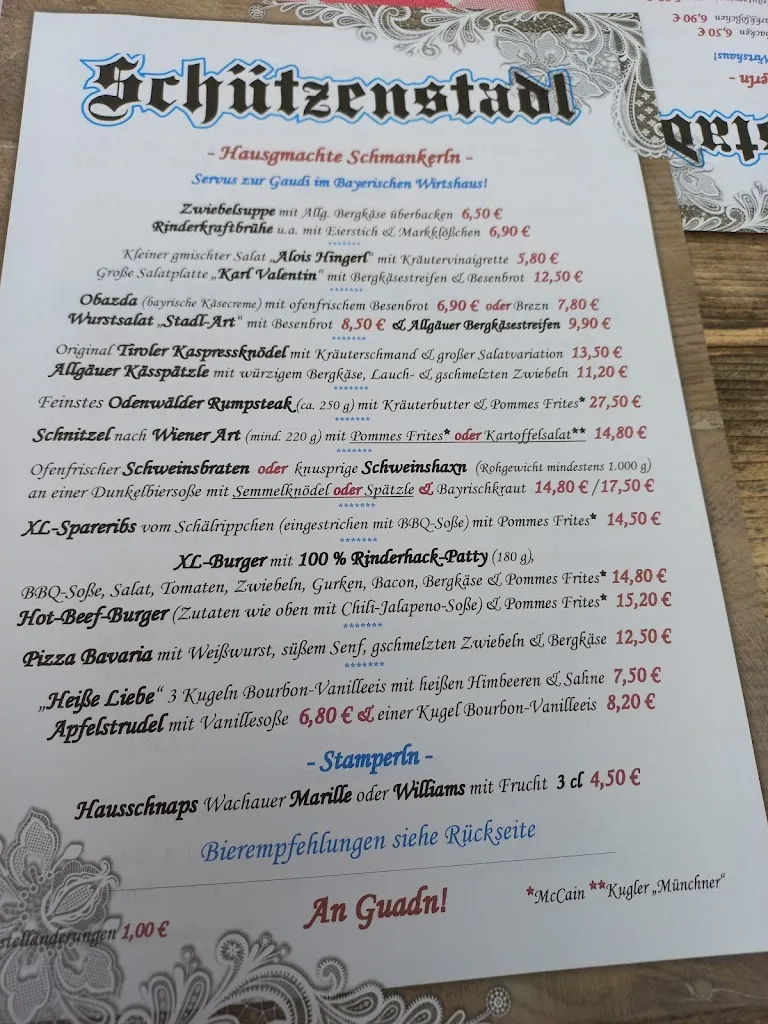 Schützenstadl
- Hausgmachte Schmankerln -
Servus zur Gaudi im Bayerischen Wirtshaus!
Zwiebelsuppe mit Allg. Bergkäse überbacken 6,50 €
Rinderkraftbrühe u.a. mit Eierstich & Markklößchen 6,90 €
*******
Kleiner gmischter Salat „Alois Hingerl" mit Kräutervinaigrette 5,80 €
Große Salatplatte „Karl Valentin" mit Bergkäsestreifen & Besenbrot 12,50 €
*******
Obazda (bayrische Käsecreme) mit ofenfrischem Besenbrot 6,90 € oder Brezn 7,80 €
Wurstsalat „Stadl-Art" mit Besenbrot 8,50 € & Allgäuer Bergkäsestreifen 9,90 €
*******
Original Tiroler Kaspressknödel mit Kräuterschmand & großer Salatvariation 13,50 €
Allgäuer Kässpätzle mit würzigem Bergkäse, Lauch- & gschmelzten Zwiebeln 11,20 €
*******
Feinstes Odenwälder Rumpsteak (ca. 250 g) mit Kräuterbutter & Pommes Frites* 27,50 €
*******
Schnitzel nach Wiener Art (mind. 220 g) mit Pommes Frites* oder Kartoffelsalat** 14,80 €
*******
Ofenfrischer Schweinsbraten oder knusprige Schweinshaxn (Rohgewicht mindestens 1.000 g)
an einer Dunkelbiersoße mit Semmelknödel oder Spätzle & Bayrischkraut 14,80 € / 17,50 €
*******
XL-Spareribs vom Schälrippchen (eingestrichen mit BBQ-Soße) mit Pommes Frites* 14,50 €
*******
XL-Burger mit 100 % Rinderhack-Patty (180 g),
BBQ-Soße, Salat, Tomaten, Zwiebeln, Gurken, Bacon, Bergkäse & Pommes Frites* 14,80 €
Hot-Beef-Burger (Zutaten wie oben mit Chili-Jalapeno-Soße) & Pommes Frites* 15,20 €
*******
Pizza Bavaria mit Weißwurst, süßem Senf, gschmelzten Zwiebeln & Bergkäse 12,50 €
*******
„Heiße Liebe" 3 Kugeln Bourbon-Vanilleeis mit heißen Himbeeren & Sahne 7,50 €
Apfelstrudel mit Vanillesoße 6,80 € & einer Kugel Bourbon-Vanilleeis 8,20 €
- Stamperln -
Hausschnaps Wachauer Marille oder Williams mit Frucht 3 cl 4,50 €
Bierempfehlungen siehe Rückseite
An Guadn!
*McCain **Kugler „Münchner"
stelländerungen 1,00 €
6,90 €
6,50 €